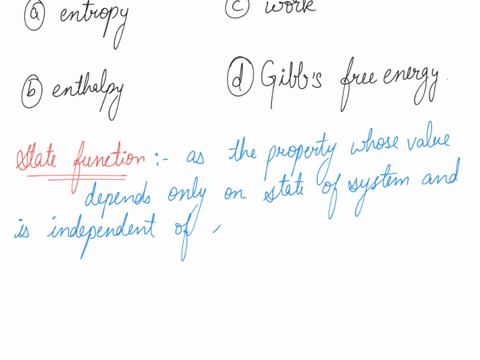 (a) entropy (c) work
(b) enthalpy (d) Gibb's free energy.
State function :- as the property whose value
depends only on state of system and
is independent of